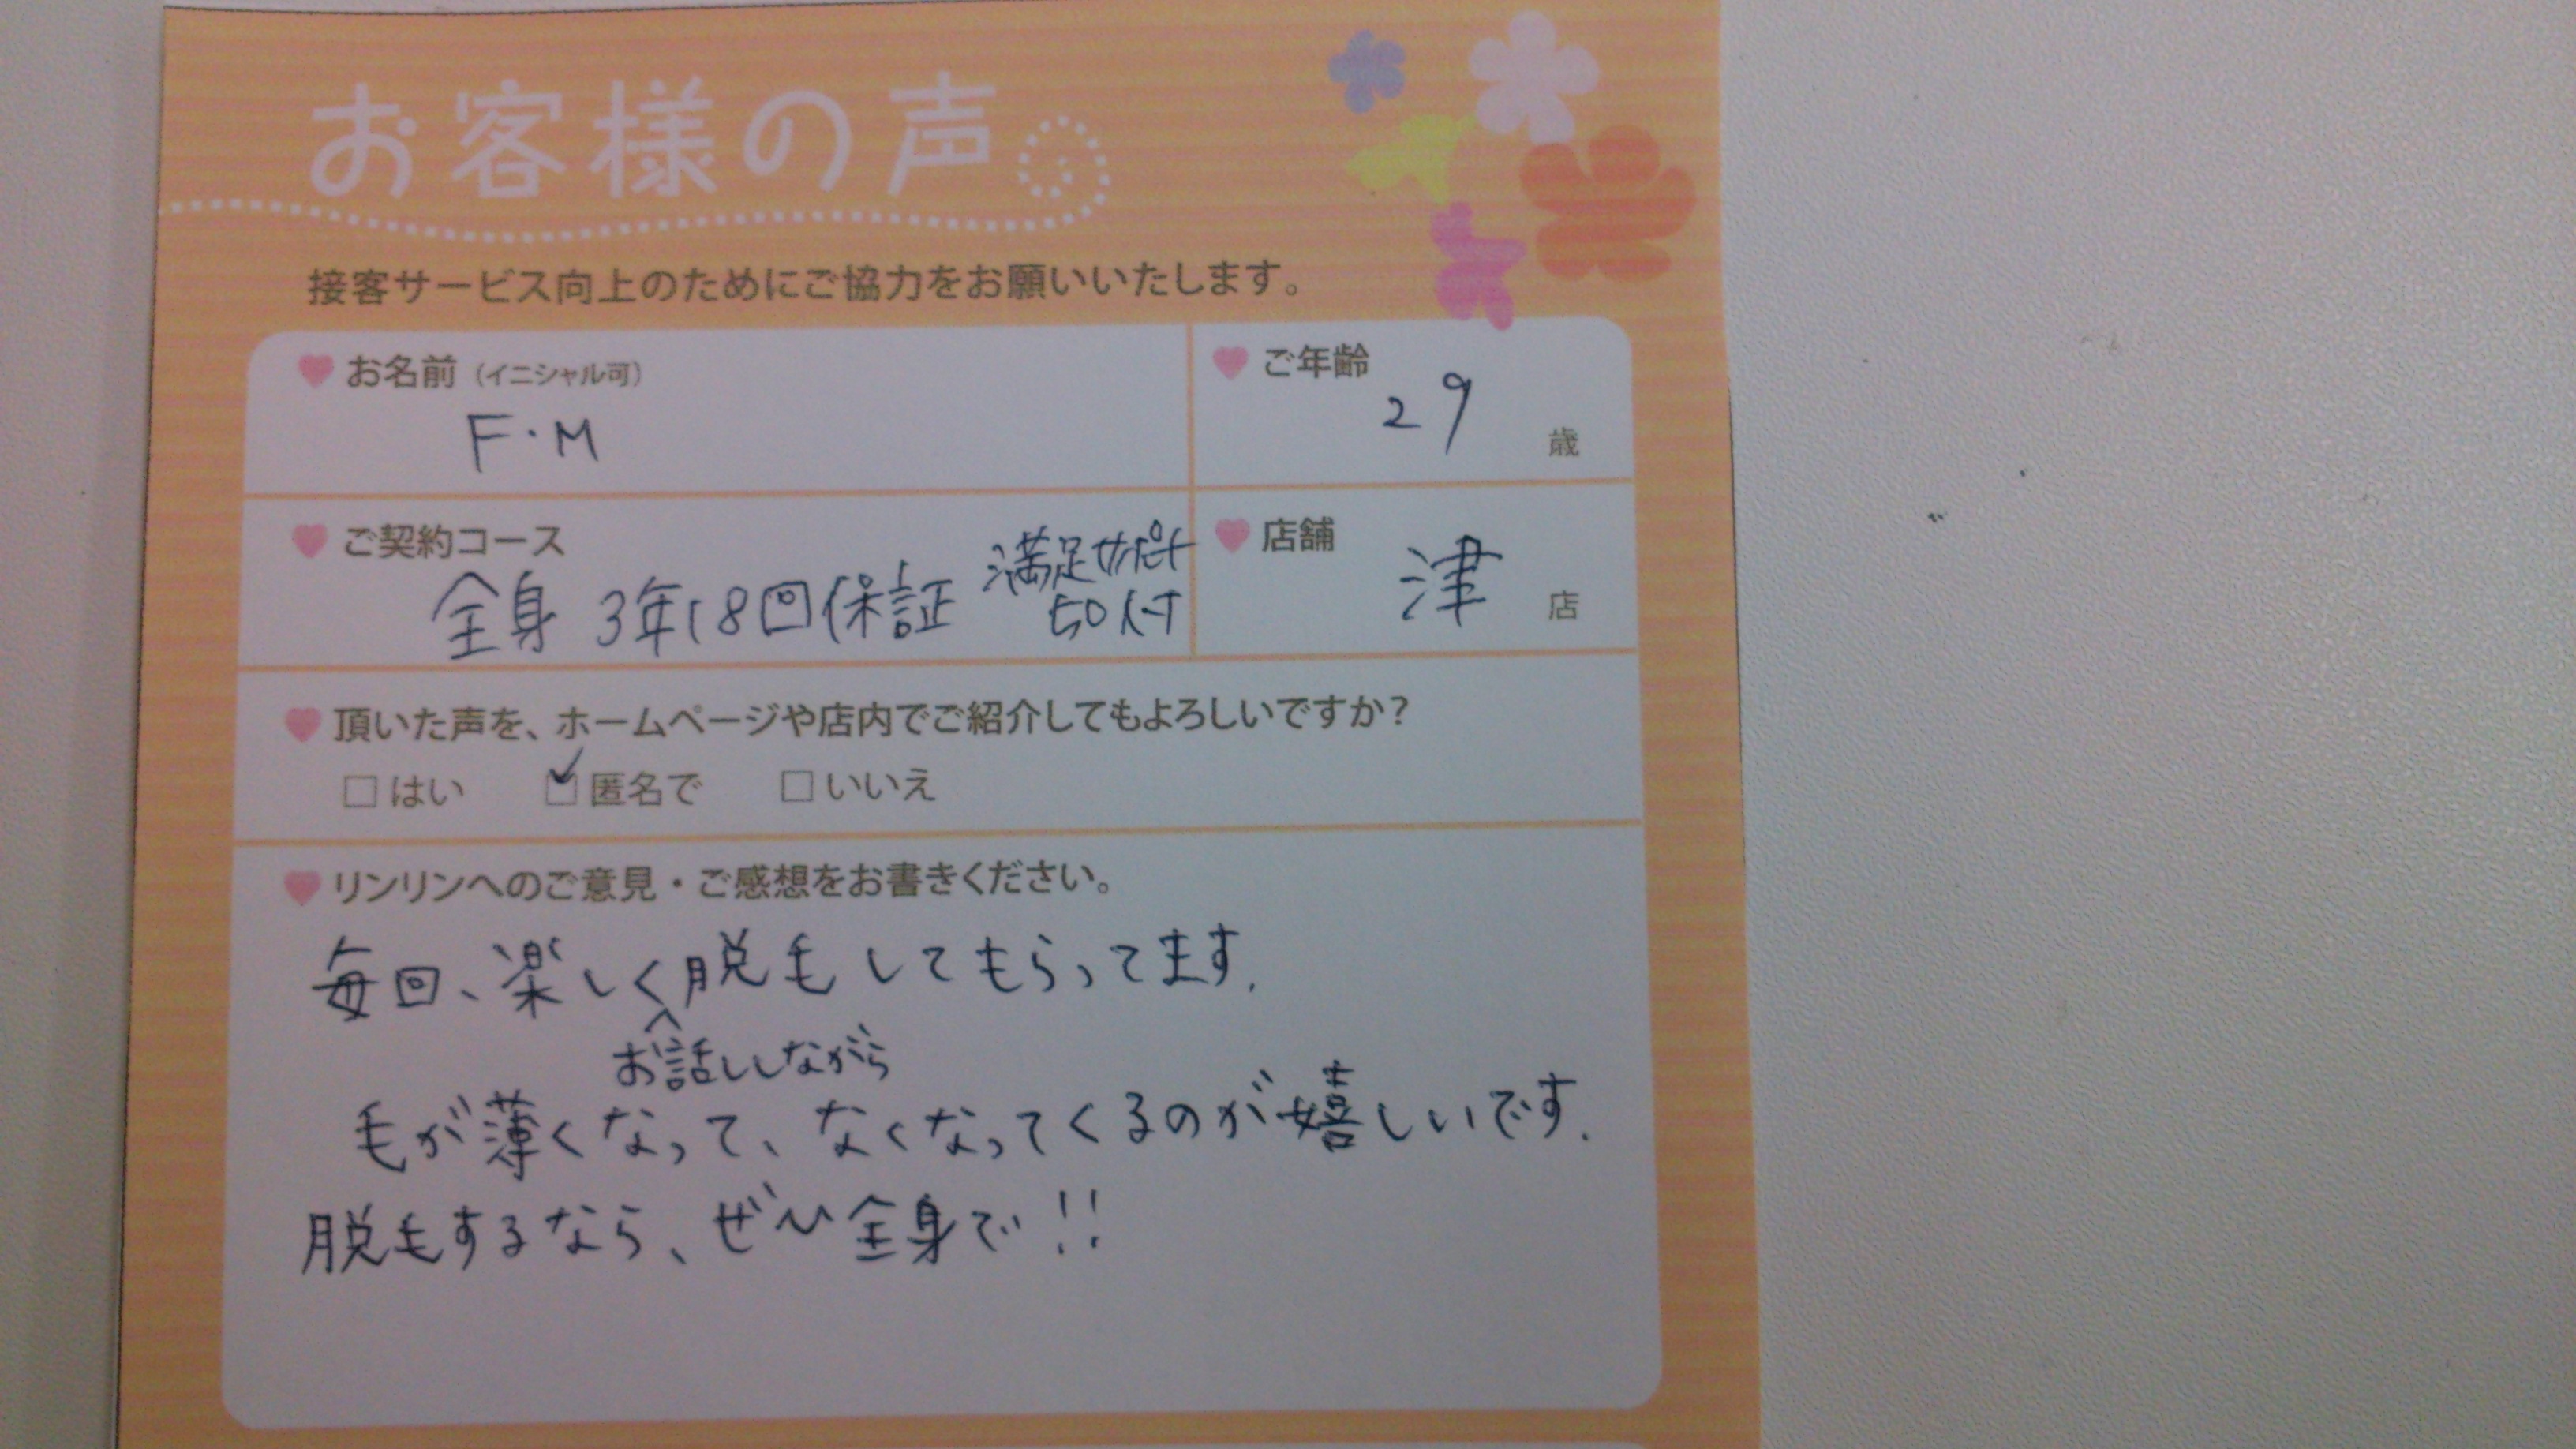 お客様の声
接客サービス向上のためにご協力をお願いいたします。
お名前（イニシャル可）
F・M
ご年齢
29
歳
ご契約コース
全身 3年18回保証
満足サポート
50付
店舗
津
店
頂いた声を、ホームページや店内でご紹介してもよろしいですか？
□はい ☑匿名で □いいえ
リンリンへのご意見・ご感想をお書きください。
毎回、楽しく脱毛してもらってます.
お話ししながら
毛が薄くなって、なくなってくるのが嬉しいです.
脱毛するなら、ぜひ全身で!!